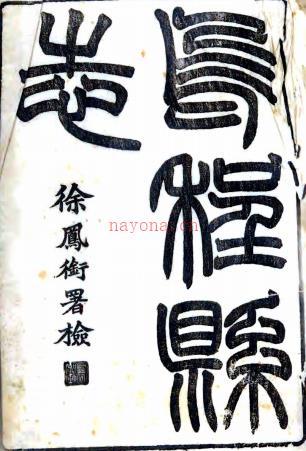 烏程縣
志
徐鳳銜署檢
nayona.cn